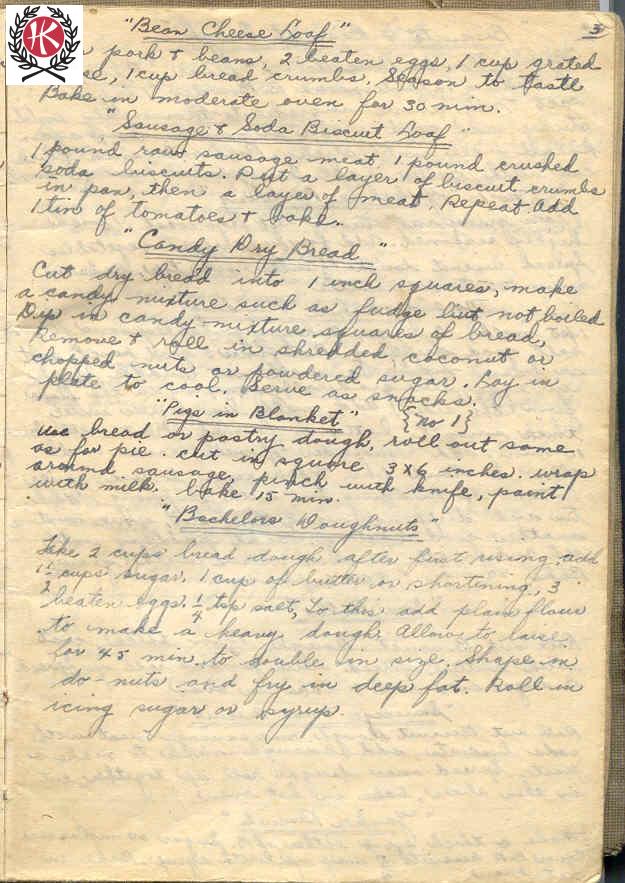 3
"Bean Cheese Loaf"
pork & beans, 2 beaten eggs, 1 cup grated
1 cup bread crumbs. Season to taste
Bake in moderate oven for 30 min.
"Sausage & Soda Biscuit Loaf"
1 pound raw sausage meat 1 pound crushed
soda biscuits. Put a layer of biscuit crumbs
in pan, then a layer of meat. Repeat. Add
1 tin of tomatoes & bake.
"Candy Dry Bread"
Cut dry bread into 1 inch squares, make
a candy mixture such as fudge but not boiled
Dip in candy mixture squares of bread,
Remove & roll in shredded coconut or
chopped nuts or powdered sugar. Lay in
plate to cool. Serve as snacks.
"Pigs in Blanket" {No 1}
use bread or pastry dough, roll out same
as for pie. cut in square 3x6 inches. wrap
around sausage, pinch with knife, paint
with milk. bake 15 min.
"Bachelors Doughnuts"
Take 2 cups bread dough after first rising. add
1 1/2 cups sugar, 1 cup of butter or shortening, 3
beaten eggs, 1/4 tsp salt, To this add plain flour
to make a heavy dough. Allow to raise
for 45 min. to double in size. Shape in
do-nuts and fry in deep fat. Roll in
icing sugar or syrup.